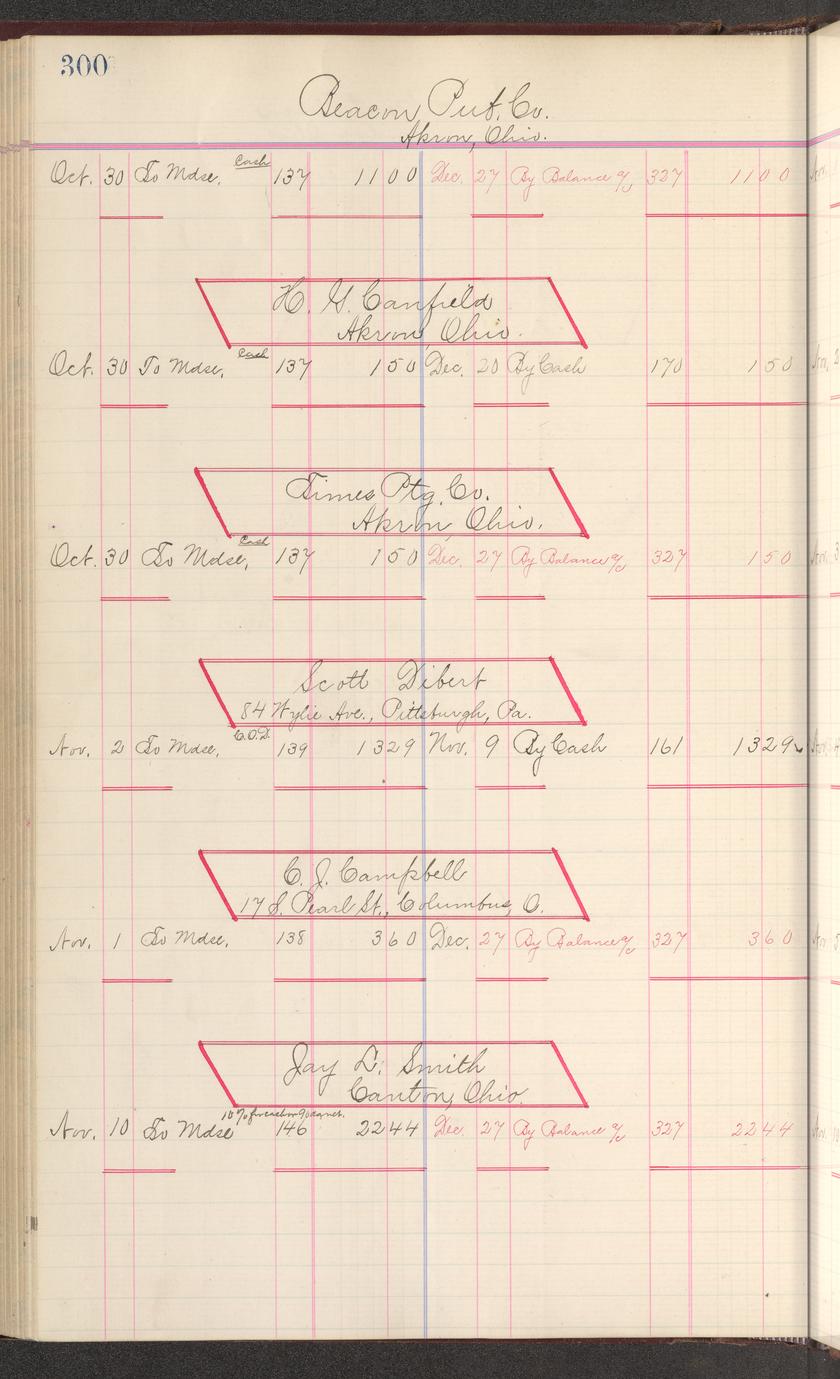 300
Beacon Pub. Co.
Akron, Ohio.
Oct. 30 To Mdse. Cash 137 11 00 Dec. 27 By Balance a/c 327 11 00
H. G. Canfield
Akron, Ohio.
Oct. 30 To Mdse. Cash 137 1 50 Dec. 20 By Cash 170 1 50
Times Ptg. Co.
Akron, Ohio.
Oct. 30 To Mdse. Cash 137 1 50 Dec. 27 By Balance a/c 327 1 50
Scott Dibert
84 Wylie Ave., Pittsburgh, Pa.
Nov. 2 To Mdse. C.O.D. 139 13 29 Nov. 9 By Cash 161 13 29
C. J. Campbell
17 S. Pearl St., Columbus, O.
Nov. 1 To Mdse. 138 3 60 Dec. 27 By Balance a/c 327 3 60
Jay L. Smith
Canton, Ohio.
10% for cash or 90 da net.
Nov. 10 To Mdse 146 22 44 Dec. 27 By Balance a/c 327 22 44